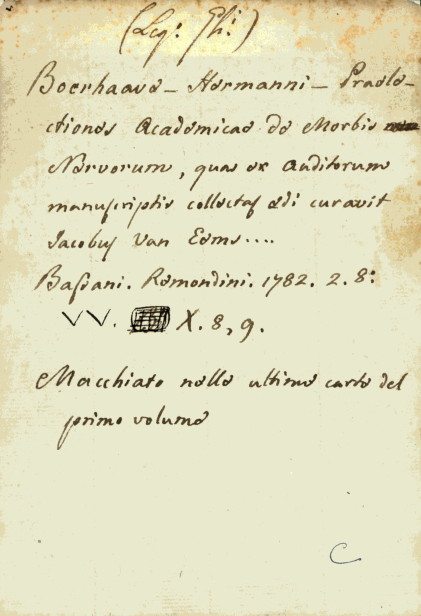 (Leg: Gh:)
Boerhaave - Hermanni - Praele-
ctiones Academicae de Morbis
Nervorum, quas ex auditorum
manuscriptis collectas edi curavit
Jacobus Van Eems....
Bassani. Remondini. 1782. 2. 8:
VV. X. 8, 9.
Macchiato nelle ultime carte del
primo volume
C